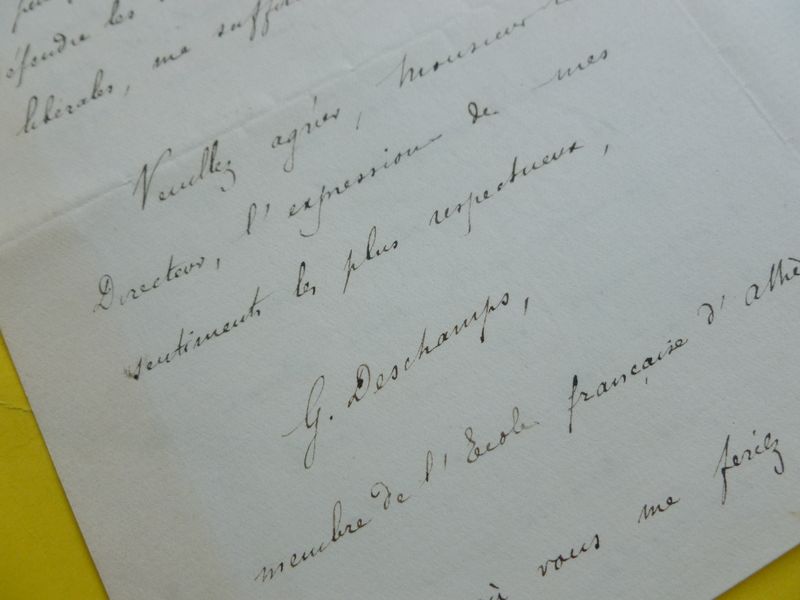 éfendre les
libérales, me suffir
Veuillez agréer, Monsieur le
Directeur, l'expression de mes
sentiments les plus respectueux,
G. Deschamps,
membre de l'Ecole française d'Athè
où vous me feriez